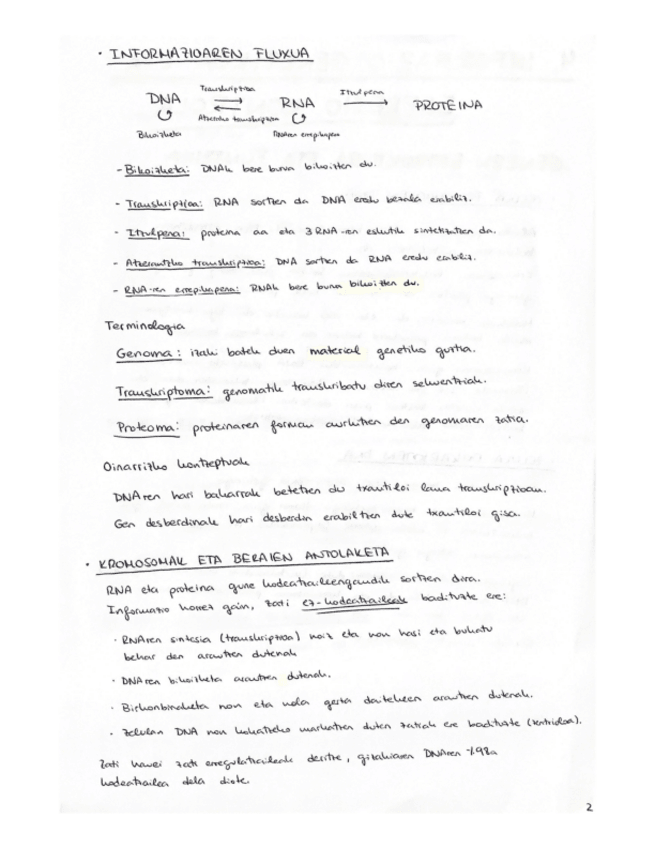 · INFORMAZIOAREN FLUXUA
Transkriptioa Itzulpena
DNA RNA PROTEINA
Atzerako transkriptioa
Bikoizketa RNAren errepikapena
- Bikoizketa: DNAk bere burua bikoizten du.
- Transkriptioa: RNA sortzen da DNA eredu bezala erabiliz.
- Itzulpena: proteina aa eta 3 RNA-ren eskutik sintetizatzen da.
- Atzerantzko transkriptioa: DNA sortzen da RNA eredu erabiliz.
- RNA-ren errepikapena: RNAk bere burua bikoizten du.
Terminologia
Genoma: izaki batek duen material genetiko guztia.
Transkriptoma: genomatik transkribatu diren sekuentziak.
Proteoma: proteinaren forman aurkitzen den genomaren zatia.
Oinarrizko kontzeptuak
DNAren hari bakarrak betetzen du txantiloi lana transkriptioan.
Gen desberdinak hari desberdin erabiltzen dute txantiloi gisa.
· KROMOSOMAK ETA BERAIEN ANTOLAKETA
RNA eta proteina gune kodeatzaileengandik sortzen dira.
Informatio horrez gain, zati ez-kodeatzaileak badituzte ere:
· RNAren sintesia (transkriptioa) noiz eta non hasi eta bukatu
behar den arautzen dutenak
· DNAren bikoizketa arautzen dutenak.
· Birkonbinaketa non eta nola gerta daitekeen arautzen dutenak.
· Zelulan DNA non kokatzeko markatzen duten zatiak ere badituzte (zentrioloa).
Zati hauei zati erregulatzaileak deritze, gizakiaren DNAren %98a
kodeatzailea dela diote.
2